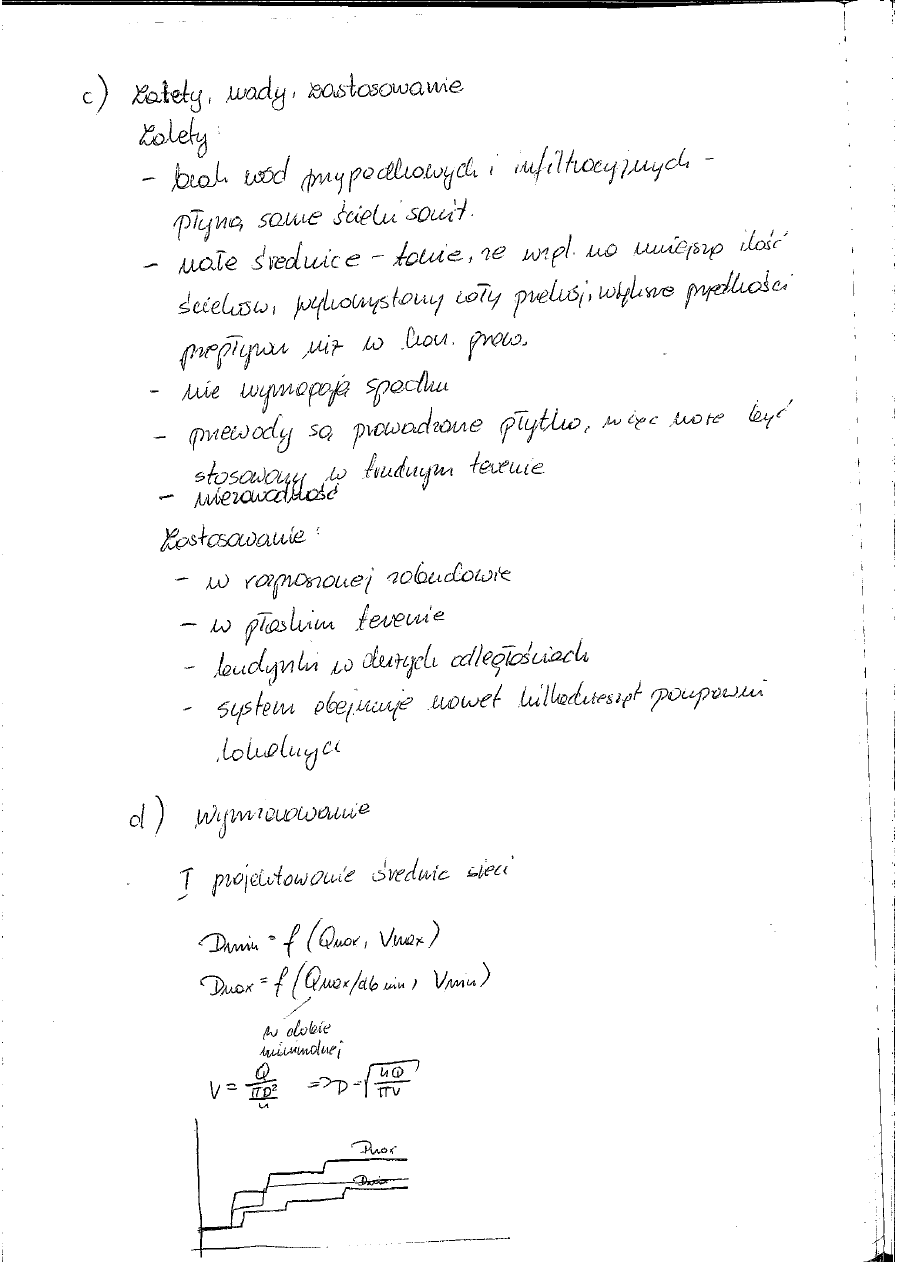 c) Zalety, wady, zastosowanie
Zalety:
- brak wód przypadkowych i infiltracyjnych -
płyną same ścieki sanit.
- małe średnice - takie, że wzgl. na mniejszą ilość
ścieków, wykorzystany cały przekrój, większe prędkości
przepływu niż w kan. graw.
- nie wymagają spadku
- przewody są prowadzone płytko, więc może być
stosowany w trudnym terenie
- niezawodność
Zastosowanie:
- w rozproszonej zabudowie
- w płaskim terenie
- budynki w dużych odległościach
- system obejmuje nawet kilkadziesiąt pompowni
lokalnych
d) Wymiarowanie
I projektowanie średnic sieci
Dmin = f (Qmax, Vmax)
Dmax = f (Qmax/db min, Vmin)
w dobie
minimalnej
V = Q/(πD²/4) => D = √(4Q/πV)
Dmax
Dmin